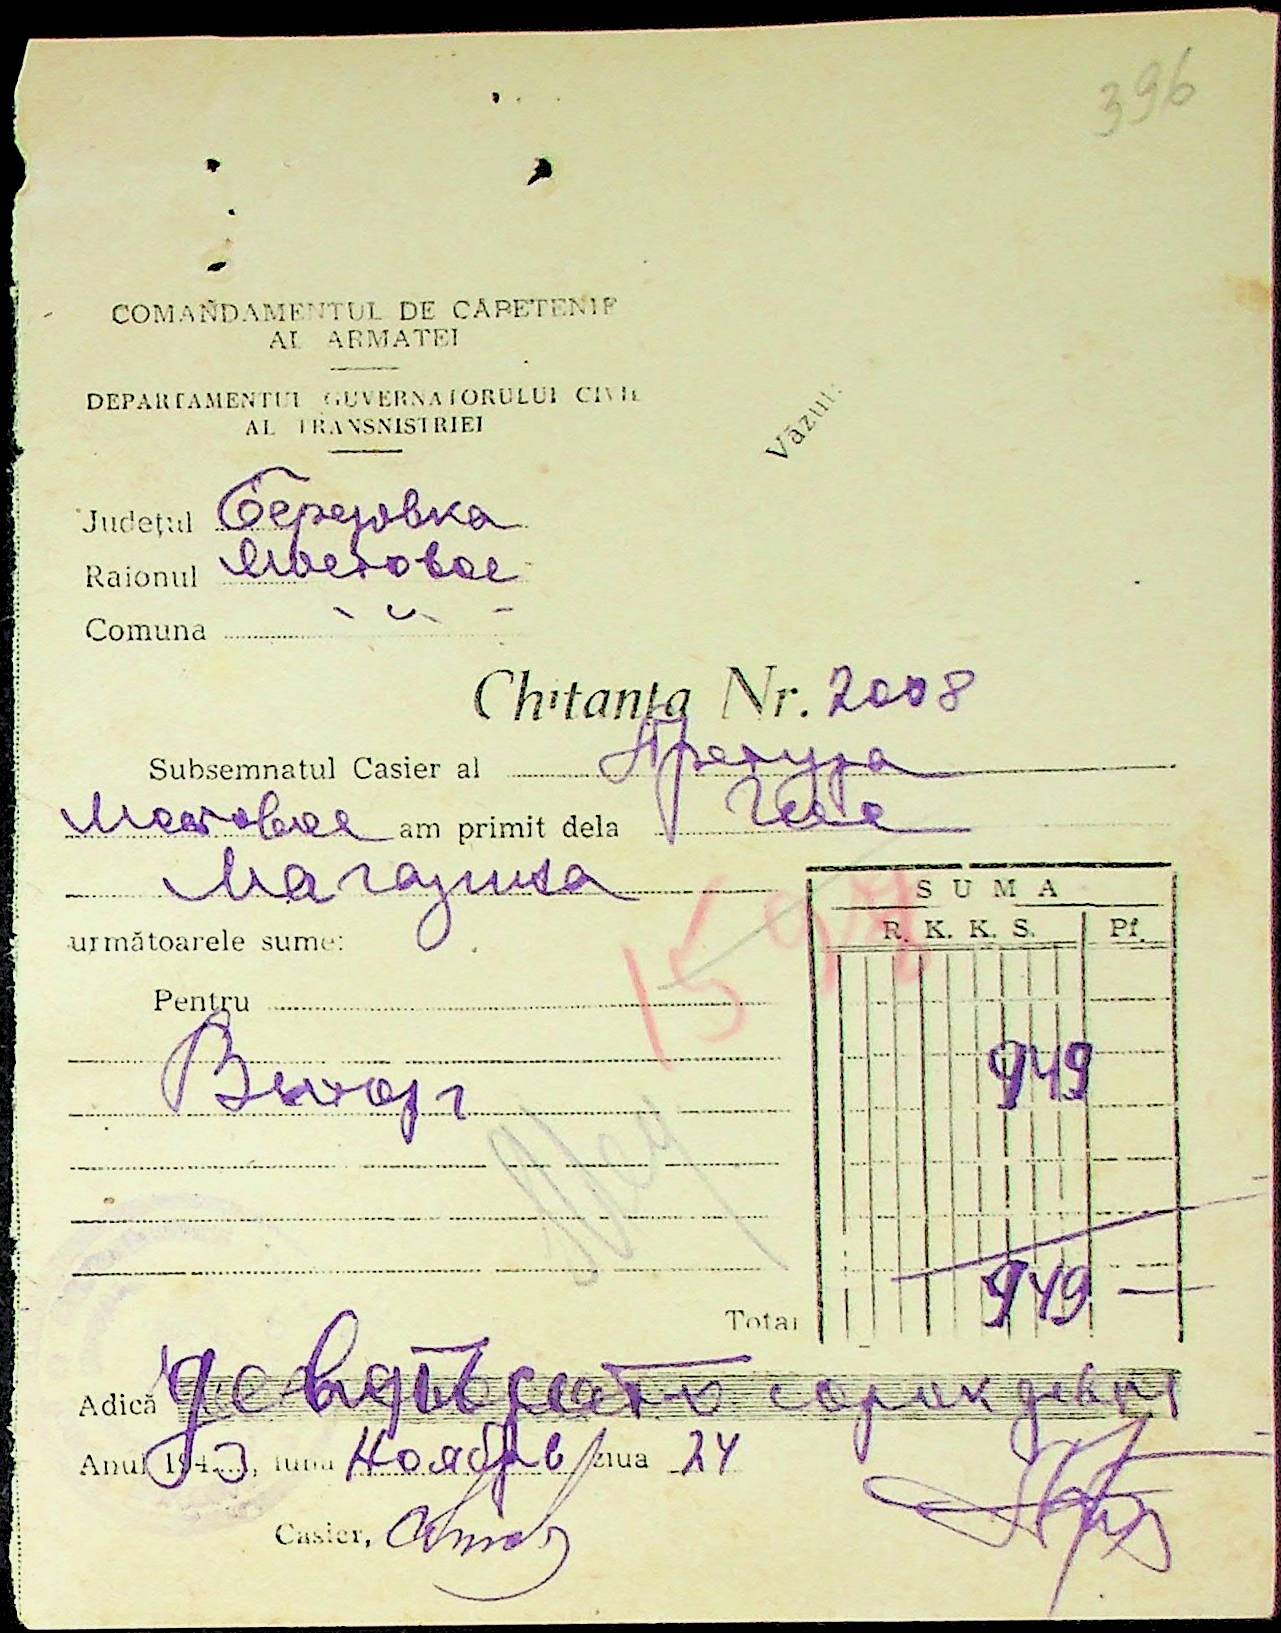 396
COMANDAMENTUL DE CĂPETENIE
AL ARMATEI
DEPARTAMENTUL GUVERNATORULUI CIVIL
AL TRANSNISTRIEI
Văzut:
Județul Березовка
Raionul Мостовое
Comuna - " -
Chitanța Nr. 2008
Subsemnatul Casier al Претура
Мостовое am primit dela
Магазина
următoarele sume:
SUMA
R. K. K. S. Pf.
Pentru
949
1598
Total 949 —
Adică девятьсот сорок девять
Anul 1943, luna Ноябрь ziua 24
Casier,